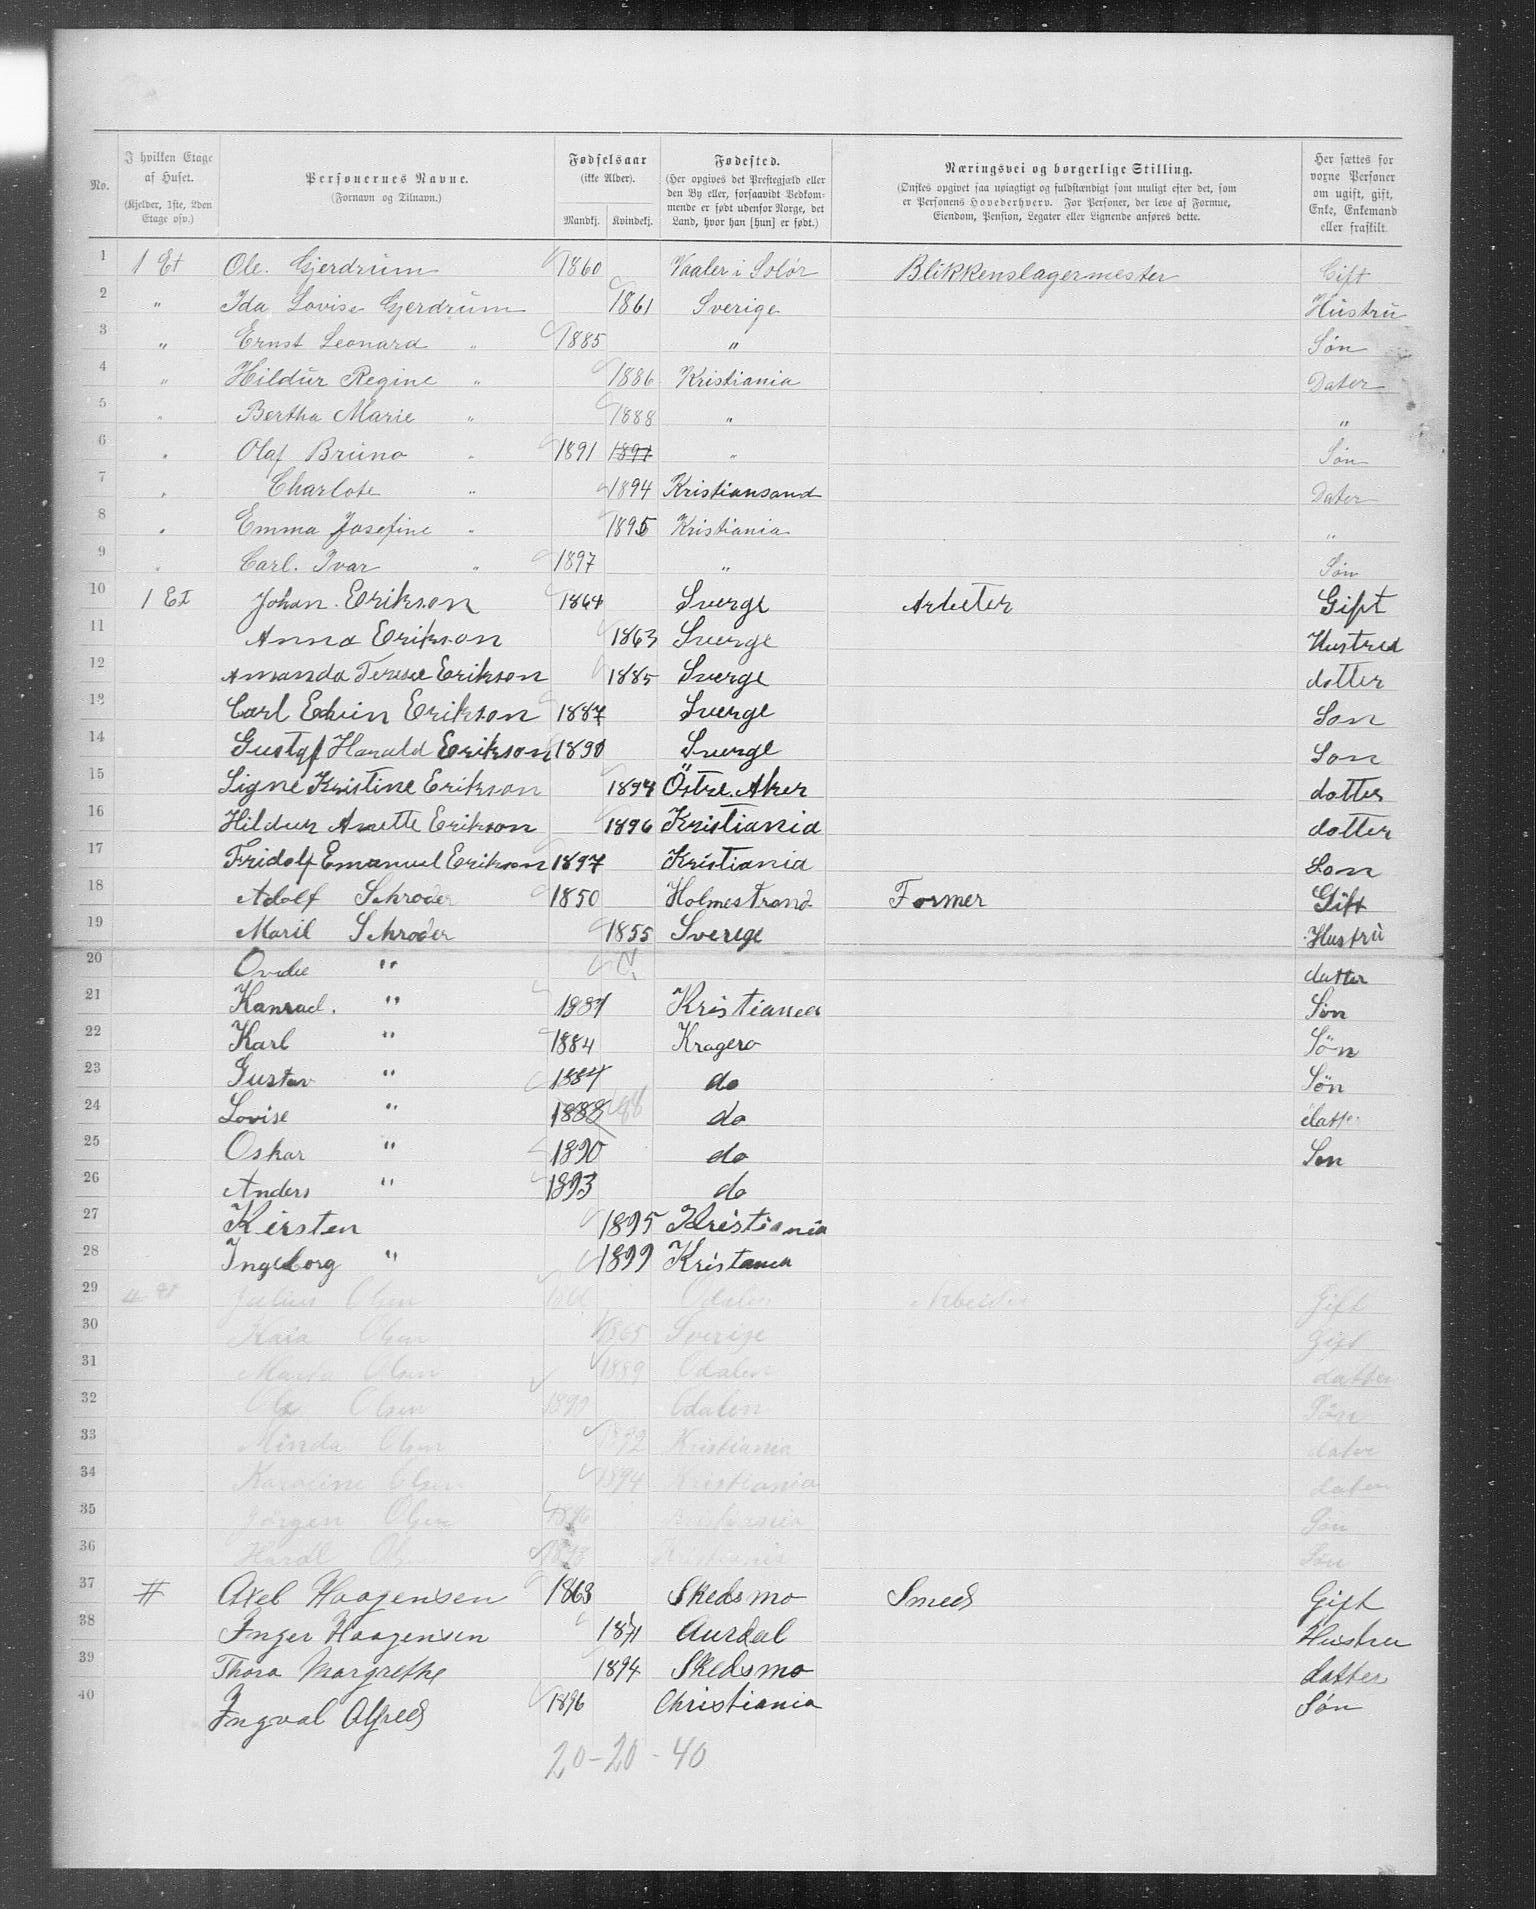 No. | I hvilken Etage af Huset. (Kjelder, 1ste, 2den Etage osv.) | Personernes Navne. (Fornavn og Tilnavn.) | Fødselsaar (ikke Alder). Mandkj. Kvindekj. | Fødested. (Her opgives det Prestegjæld eller den By eller, forsaavidt Vedkommende er født udenfor Norge, det Land, hvor han [hun] er født.) | Næringsvei og borgerlige Stilling. (Ønskes opgivet saa nøiagtigt og fuldstændigt som muligt efter det, som er Personens Hovederhverv. For Personer, der leve af Formue, Eiendom, Pension, Legater eller Lignende anføres dette. | Her sættes for vorne Personer om ugift, gift, Enke, Enkemand eller fraskilt.
1 1 Et Ole. Gjerdrum 1860 Vaaler i Solør Blikkenslagermester Gift
2 " Ida Lovise Gjerdrum 1861 Sverige Hustru
3 " Ernst Leonard " 1885 " Søn
4 " Hildur Regine " 1886 Kristiania Dater
5 " Bertha Marie " 1888 " "
6 " Olaf Bruno " 1891 1891 " Søn
7 " Charlote " 1894 Kristiansand Dater
8 " Emma Josefine " 1895 Kristiania "
9 " Carl. Ivar " 1897 " Søn
10 1 Et Johan. Erikson 1864 Sverge Arbeter Gift
11 Anna Erikson 1863 Sverge Hustred
12 Amanda Terese Erikson 1885 Sverge dotter
13 Carl Edvin Erikson 1887 Sverge Son
14 Gustaf Harald Erikson 1890 Sverge Son
15 Signe Kristine Erikson 1894 Östre. Aker dotter
16 Hildur Anette Erikson 1896 Kristiania dotter
17 Fridolf Emanuel Erikson 1897 Kristiania Son
18 Adolf Schroder 1850 Holmestrand Former Gift
19 Maril Schroder 1855 Sverege Hustru
20 " datter
21 Konrad. " Kristiania Søn
22 Karl " 1884 Kragero Søn
23 Gustav " do Søn
24 Lovise " 1888 88 do datter
25 Oskar " 1890 do Søn
26 Anders " 1893 do
27 Kirsten 1895 Kristiania
28 Ingeborg " 1899 Kristania
29 Julius Olsen Odalen Arbeider Gift
30 Kaia Olsen 1865 Sverige Gift
31 Marta Olsen 1889 Odalen datter
32 Olsen Odalen Søn
33 Minda Olsen 1892 Kristiania dater
34 Karoline Olsen 1894 Kristiania daten
35 Jørgen Olsen 1896 Kristiania Søn
36 Olsen 1898 Kristiania Søn
37 Axel Haagensen 1863 Skedsmo Smed Gift
38 Inger Haagensen 1871 Aurdal Hustru
39 Thora Margrethe 1894 Skedsmo datter
40 Ingval Alfred 1896 Christiania Søn
20 - 20 - 40